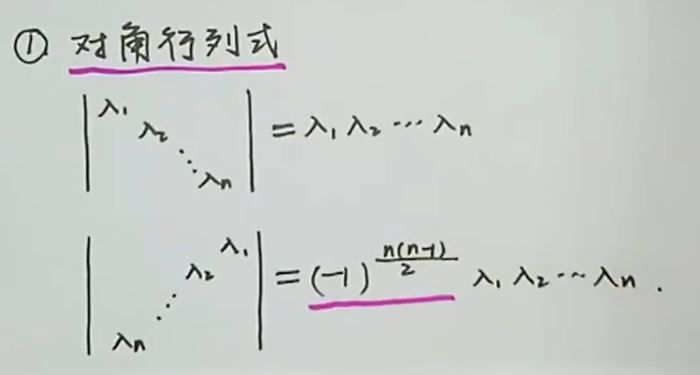 ① 对角行列式
| λ₁ λ₂ ⋱ λₙ | = λ₁ λ₂ ⋯ λₙ
| λ₁ λ₂ ⋰ λₙ | = (-1)^{\frac{n(n-1)}{2}} λ₁ λ₂ ⋯ λₙ .